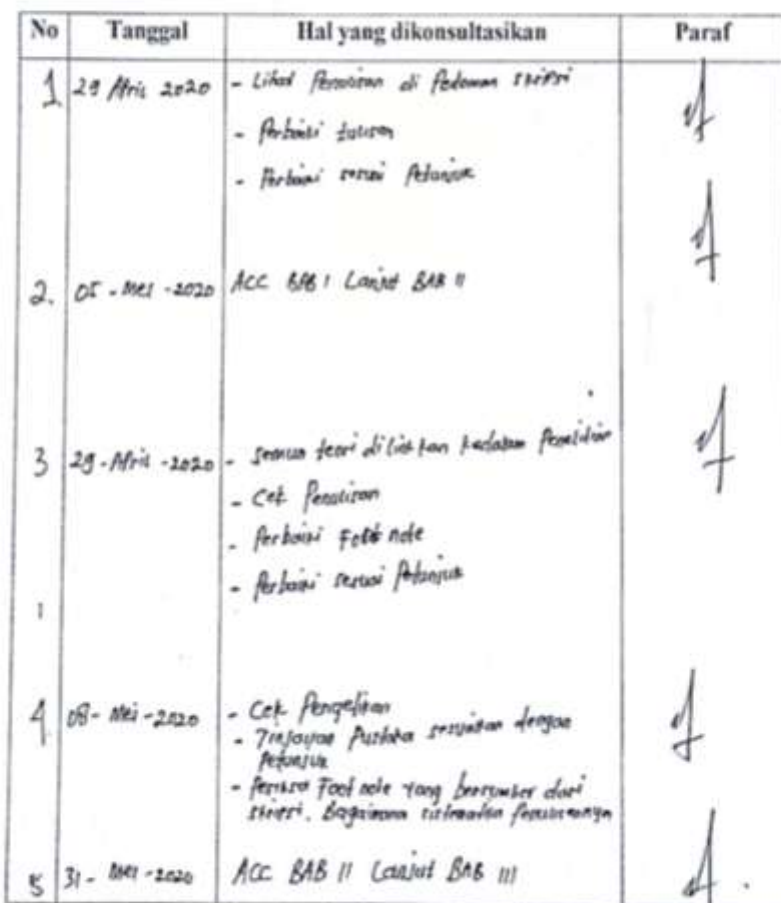 No Tanggal Hal yang dikonsultasikan Paraf
1 29 April 2020 - Lihat Penulisan di Pedoman skripsi
- Perbaiki tulisan
- Perbaiki sesuai Petunjuk
2. 05 - Mei - 2020 ACC BAB I Lanjut BAB II
3 29 - April - 2020 - semua teori di kedalam Penelitian
- Cek Penulisan
- Perbaiki Foot note
- Perbaiki sesuai Petunjuk
4 08 - Mei - 2020 - Cek Pengetikan
- Tinjauan Pustaka sesuaikan dengan
Petunjuk
- Periksa Foot note yang bersumber dari
skripsi. Bagaimana sistematika Penulisannya
5 31 - Mei - 2020 ACC BAB II Lanjut BAB III